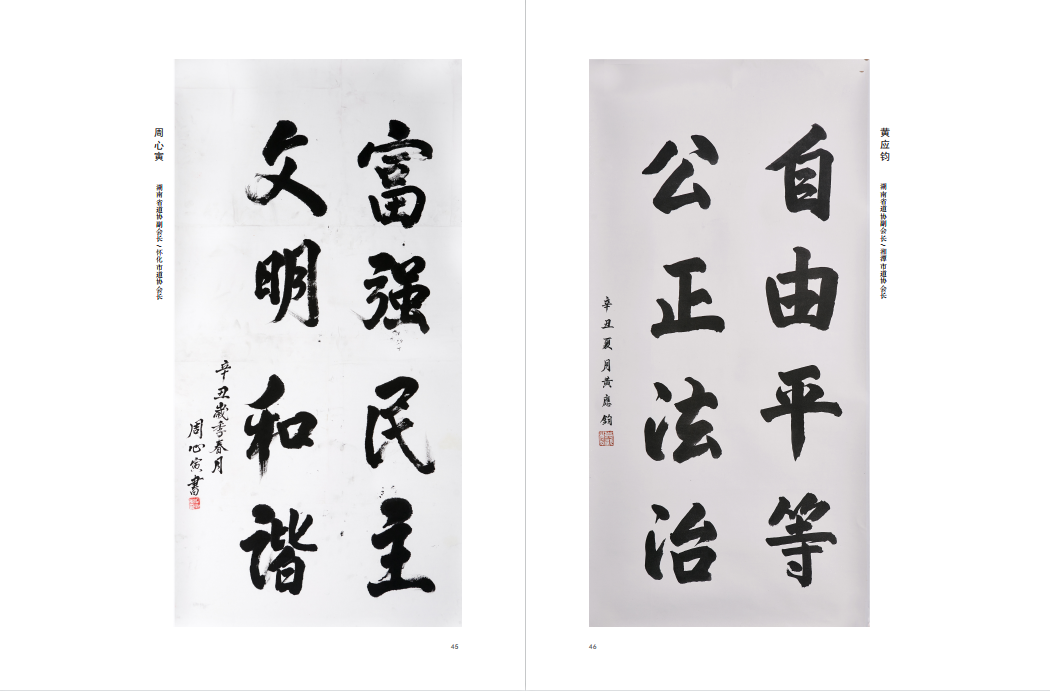 周心寅
湖南省道协副会长/怀化市道协会长
富强民主
文明和谐
辛丑歲季春月
周心寅書
45
黄应钧
湖南省道协副会长/湘潭市道协会长
自由平等
公正法治
辛丑夏月黄應鈞
46